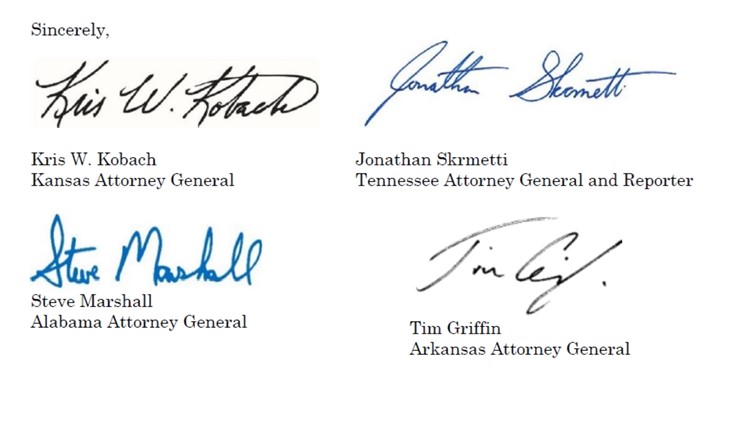 Sincerely,
Kris W. Kobach
Jonathan Skrmetti
Kris W. Kobach
Kansas Attorney General
Jonathan Skrmetti
Tennessee Attorney General and Reporter
Steve Marshall
Tim
Steve Marshall
Alabama Attorney General
Tim Griffin
Arkansas Attorney General